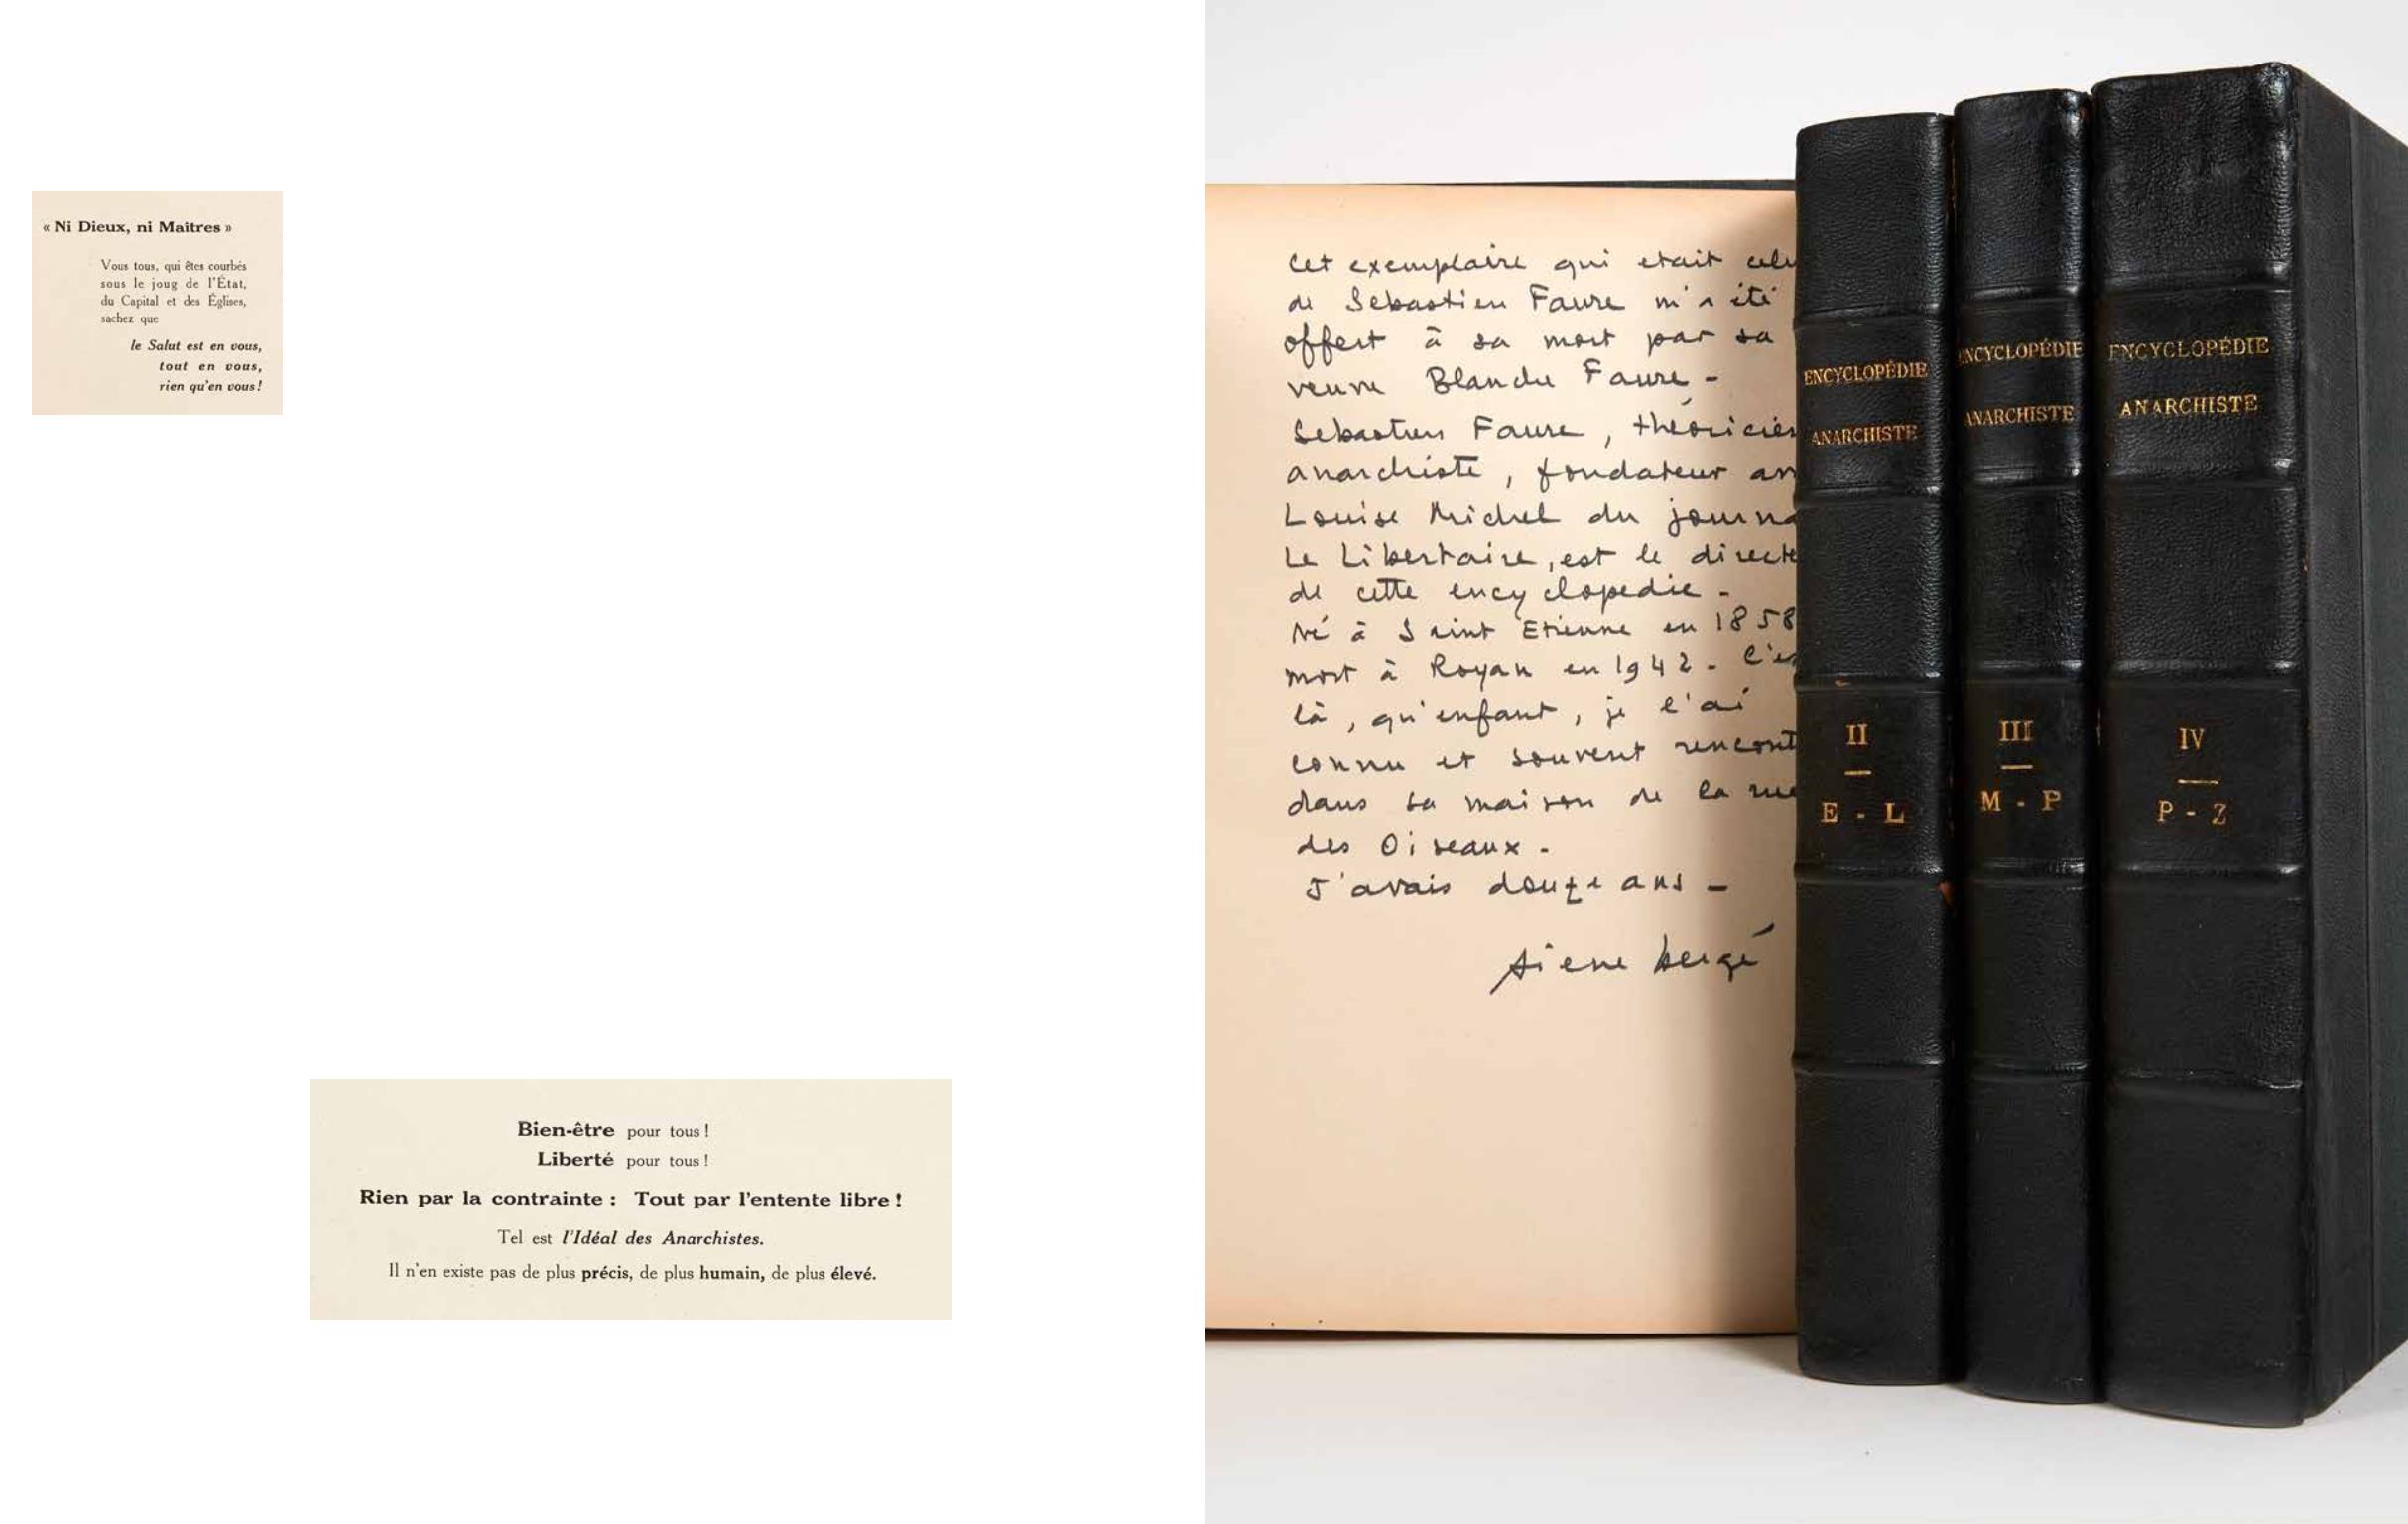 « Ni Dieux, ni Maîtres »
Vous tous, qui êtes courbés
sous le joug de l'État,
du Capital et des Églises,
sachez que
le Salut est en vous,
tout en vous,
rien qu'en vous !
Bien-être pour tous !
Liberté pour tous !
Rien par la contrainte : Tout par l'entente libre !
Tel est l'Idéal des Anarchistes.
Il n'en existe pas de plus précis, de plus humain, de plus élevé.
Cet exemplaire qui etait celu
de Sebastien Faure m'a été
offert à sa mort par sa
veuve Blanche Faure -
Sebastien Faure, théoricien
anarchiste, fondateur av
Louise Michel du journa
Le Libertaire, est le directe
de cette encyclopedie -
Né à Saint Etienne en 1858
mort à Royan en 1942 - C'es
là, qu'enfant, je l'ai
connu et souvent rencont
dans sa maison de la rue
des Oiseaux -
J'avais douze ans -
pierre bergé
ENCYCLOPÉDIE
ANARCHISTE
II
E - L
ENCYCLOPÉDIE
ANARCHISTE
III
M - P
ENCYCLOPÉDIE
ANARCHISTE
IV
P - Z